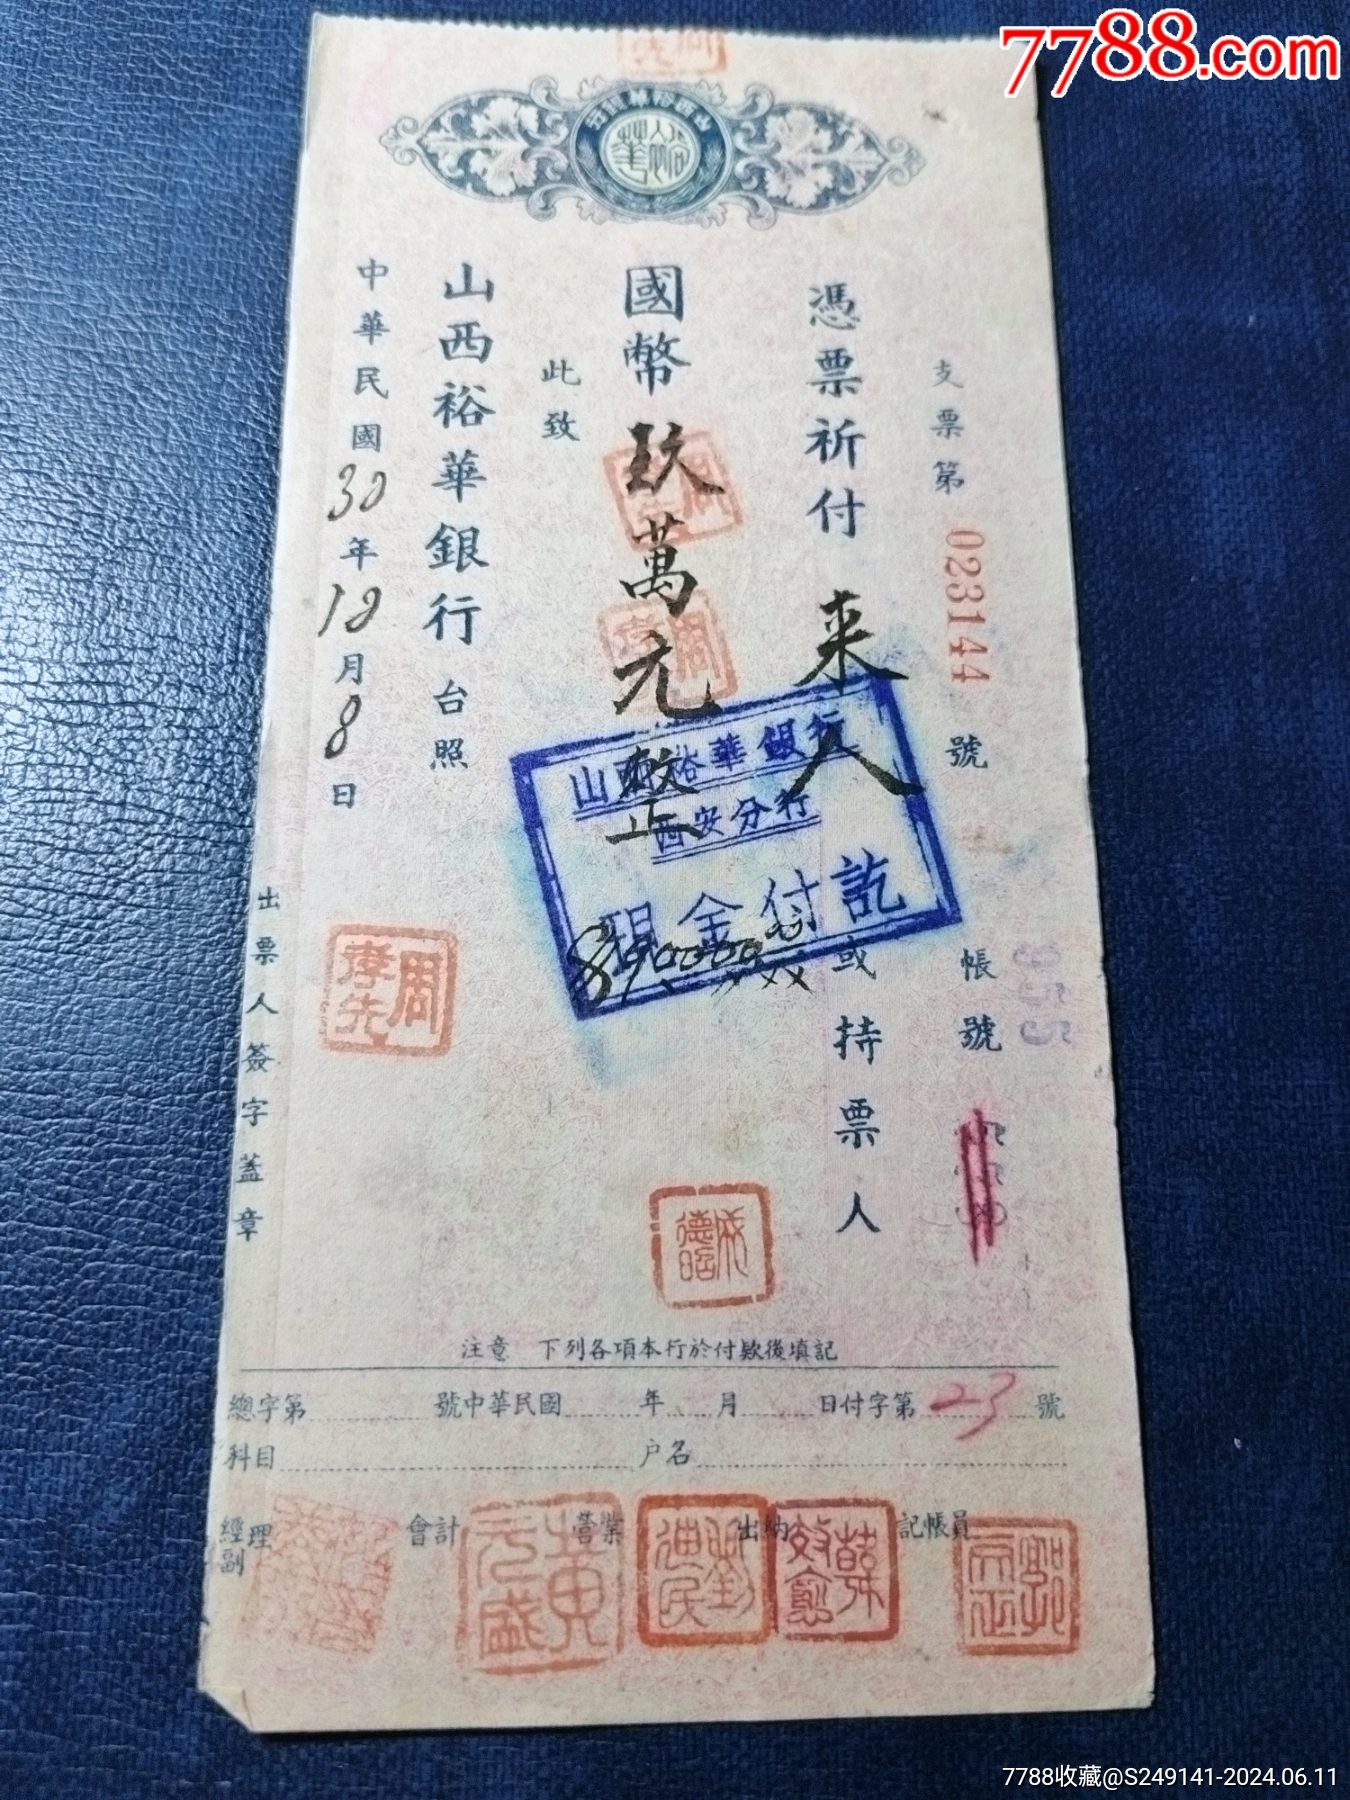 7788.com
山西裕華銀行
裕華
支票第 023144 號 帳號 355
憑票祈付 来人 或持票人
國幣 玖萬元整
此致
山西裕華銀行 台照
中華民國30年12月8日
出票人簽字蓋章
周孝先
山西裕華銀行
西安分行
現金付訖
注意 下列各項本行於付款後填記
總字第 號中華民國 年 月 日付字第 23 號
科目 户名
經副理 會計 營業 出納 記帳員
黃元盛
劉迪民
7788收藏@S249141-2024.06.11